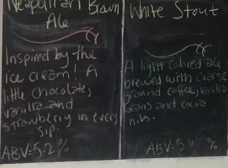 Neapolitan Brown
Ale
Inspired by the
ice cream! A
little chocolate,
vanilla and
strawberry in every
sip.
ABV: 5.2%
White Stout
A light colored ale
brewed with coarse
ground coffee, vanilla
beans and cocoa
nibs.
ABV: 5.6%